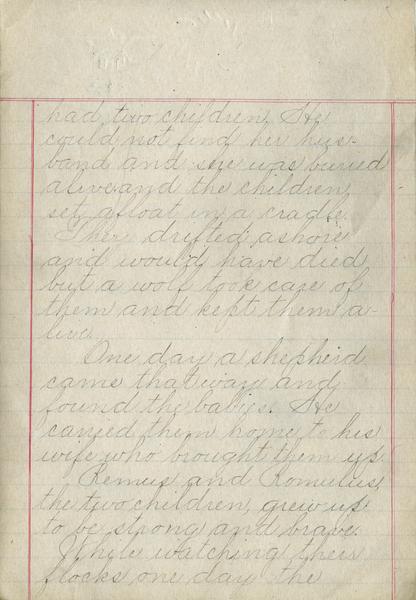 had two children. He
could not find her hus-
band and she was buried
alive and the children
set afloat in a cradle.
They drifted ashore
and would have died
but a wolf took care of
them and kept them a-
live.
One day a shepherd
came that way and
found the babies. He
carried them home to his
wife who brought them up.
Remus and Romulus,
the two children, grew up
to be strong and brave.
While watching their
flocks one day the